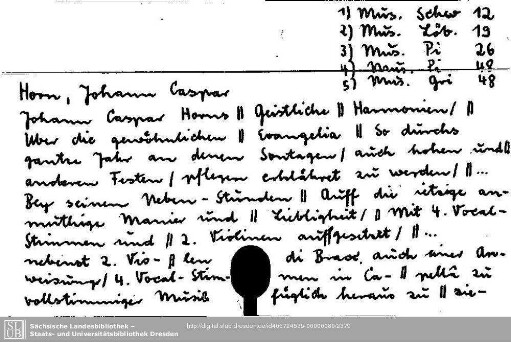 1) Mus. Scher 12
2) Mus. Löb. 19
3) Mus. Pi 26
4) Mus. Pi 48
5) Mus. Gri 48
Horn, Johann Caspar
Johann Caspar Horns || Geistliche || Harmonien/ ||
Über die gewöhnlichen || Evangelia || So durchs
gantze Jahr an denen Sontagen/ auch hohen und ||
anderen Festen/ pflegen erklähret zu werden/ || ...
Bey seinen Neben-Stunden || Auff die itzige an-
muthige Manier und || Liebligheit/ || Mit 4. Vocal-
Stimmen und || 2. Violinen auffgesetzet/ || ...
nebenst 2. Vio- || len di Brac. auch einer An-
weisung/ 4. Vocal-Stim- men in Ca- || pella zu
vollstimmiger Musik füglich heraus zu || zie-
SLUB
Sächsische Landesbibliothek –
Staats- und Universitätsbibliothek Dresden